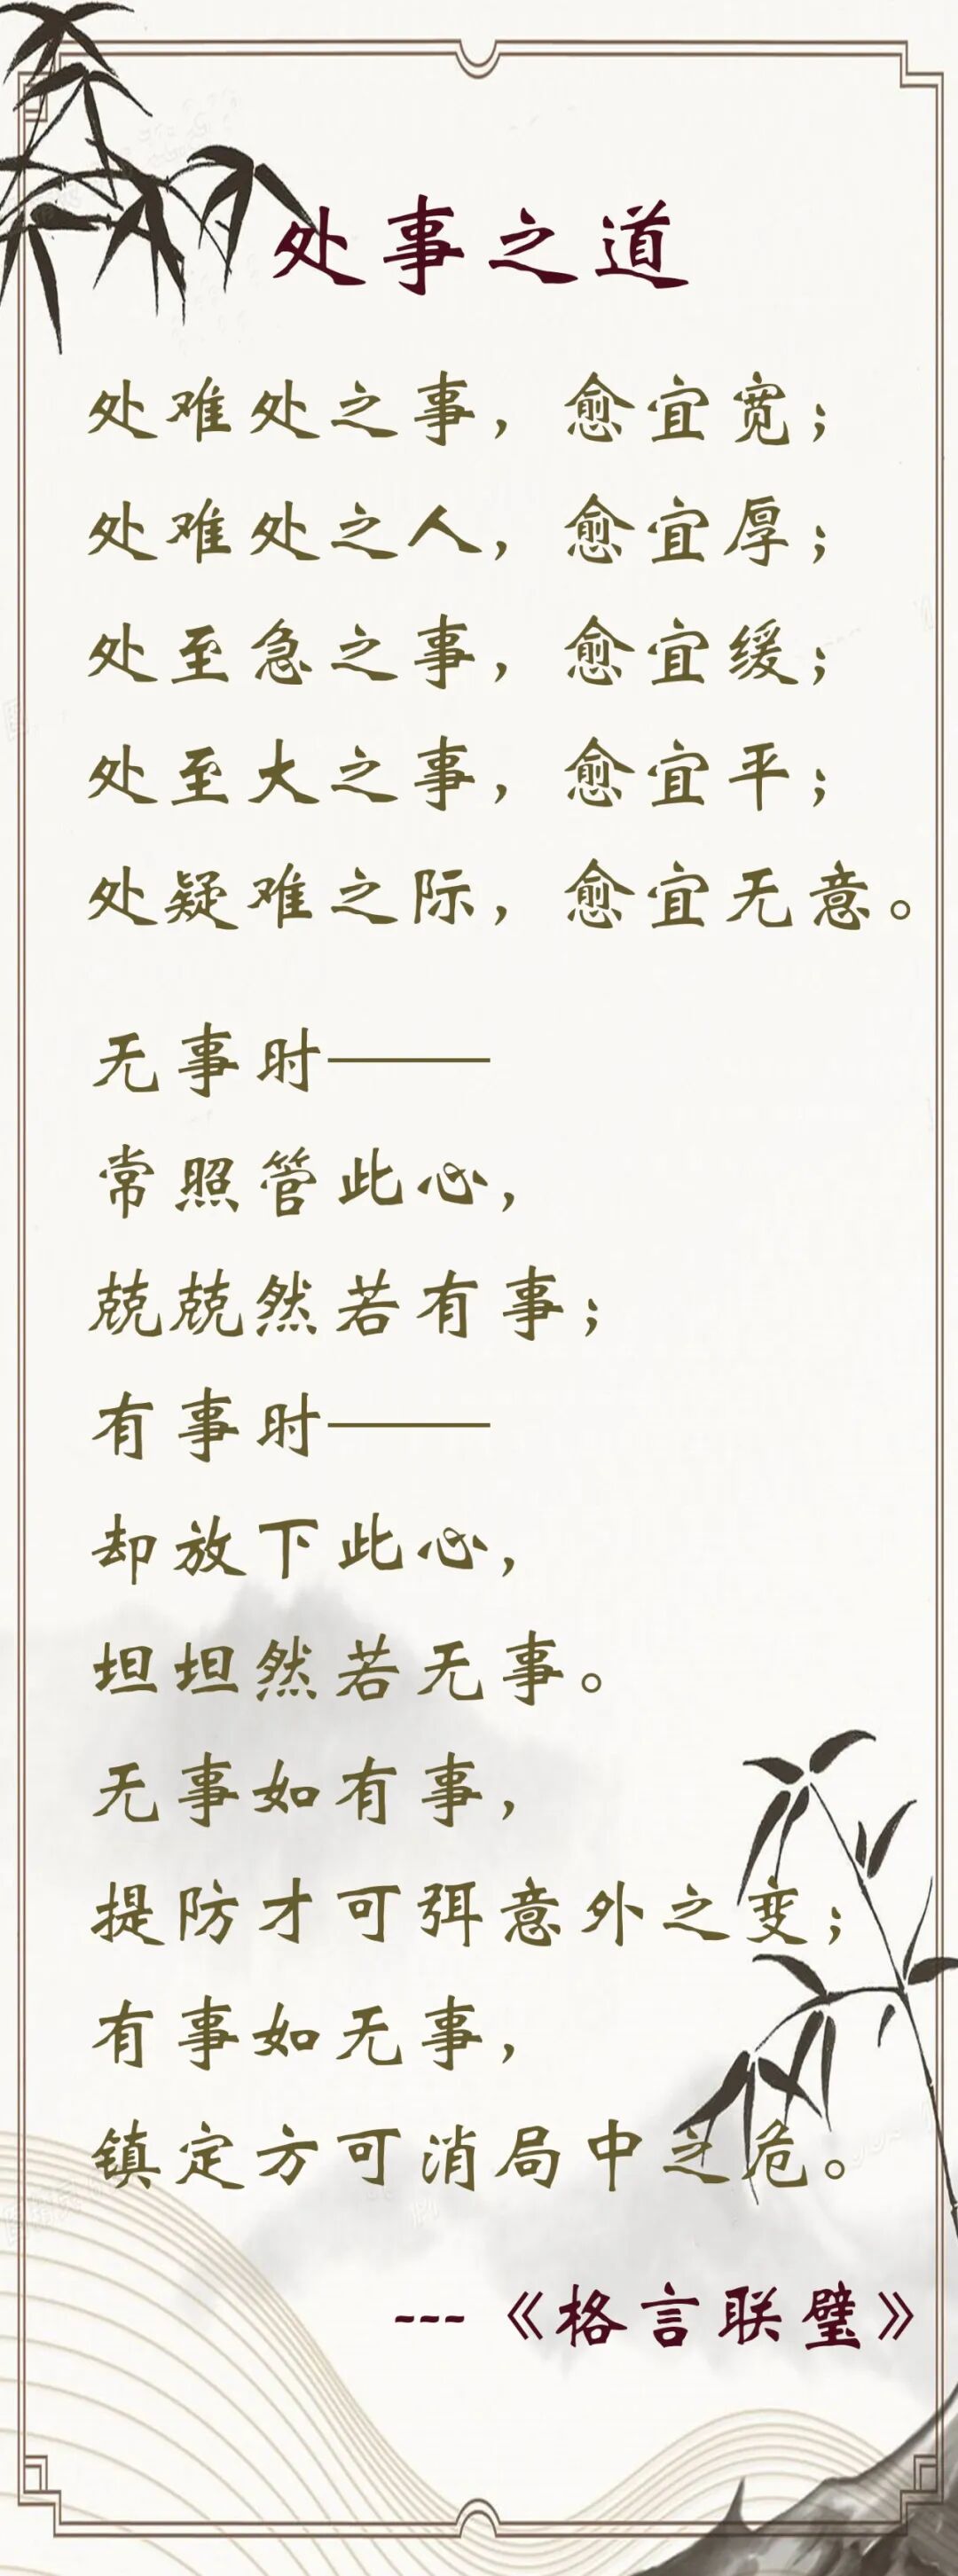 处事之道
处难处之事，愈宜宽；
处难处之人，愈宜厚；
处至急之事，愈宜缓；
处至大之事，愈宜平；
处疑难之际，愈宜无意。
无事时——
常照管此心，
兢兢然若有事；
有事时——
却放下此心，
坦坦然若无事。
无事如有事，
提防才可弭意外之变；
有事如无事，
镇定方可消局中之危。
---《格言联璧》